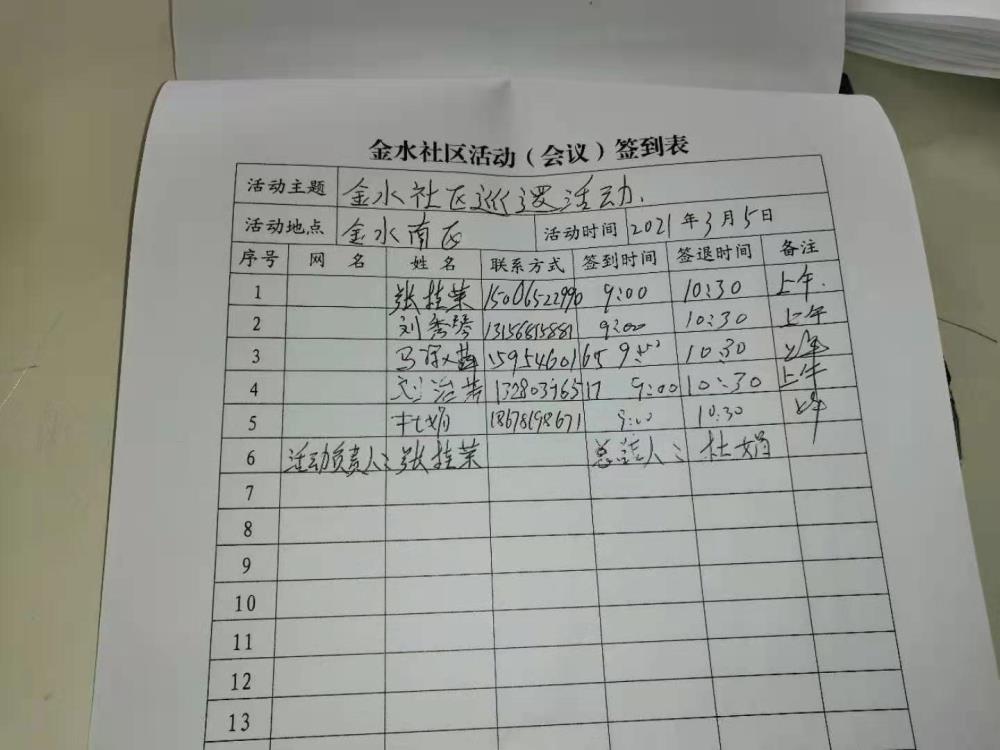 金水社区活动（会议）签到表
活动主题 金水社区巡逻活动.
活动地点 金水南区 活动时间 2021年3月5日
序号 网 名 姓 名 联系方式 签到时间 签退时间 备注
1 张桂荣 15006522990 9:00 10:30 上午.
2 刘秀琴 13156815881 9:00 10:30 上午
3 1595460165 10:30 上午
4 刘治芳 13280376517 9:00 10:30 上午
5 杜娟 18678198671 9:00 10:30 上午
6 活动负责人:张桂荣 总结人:杜娟
7
8
9
10
11
12
13